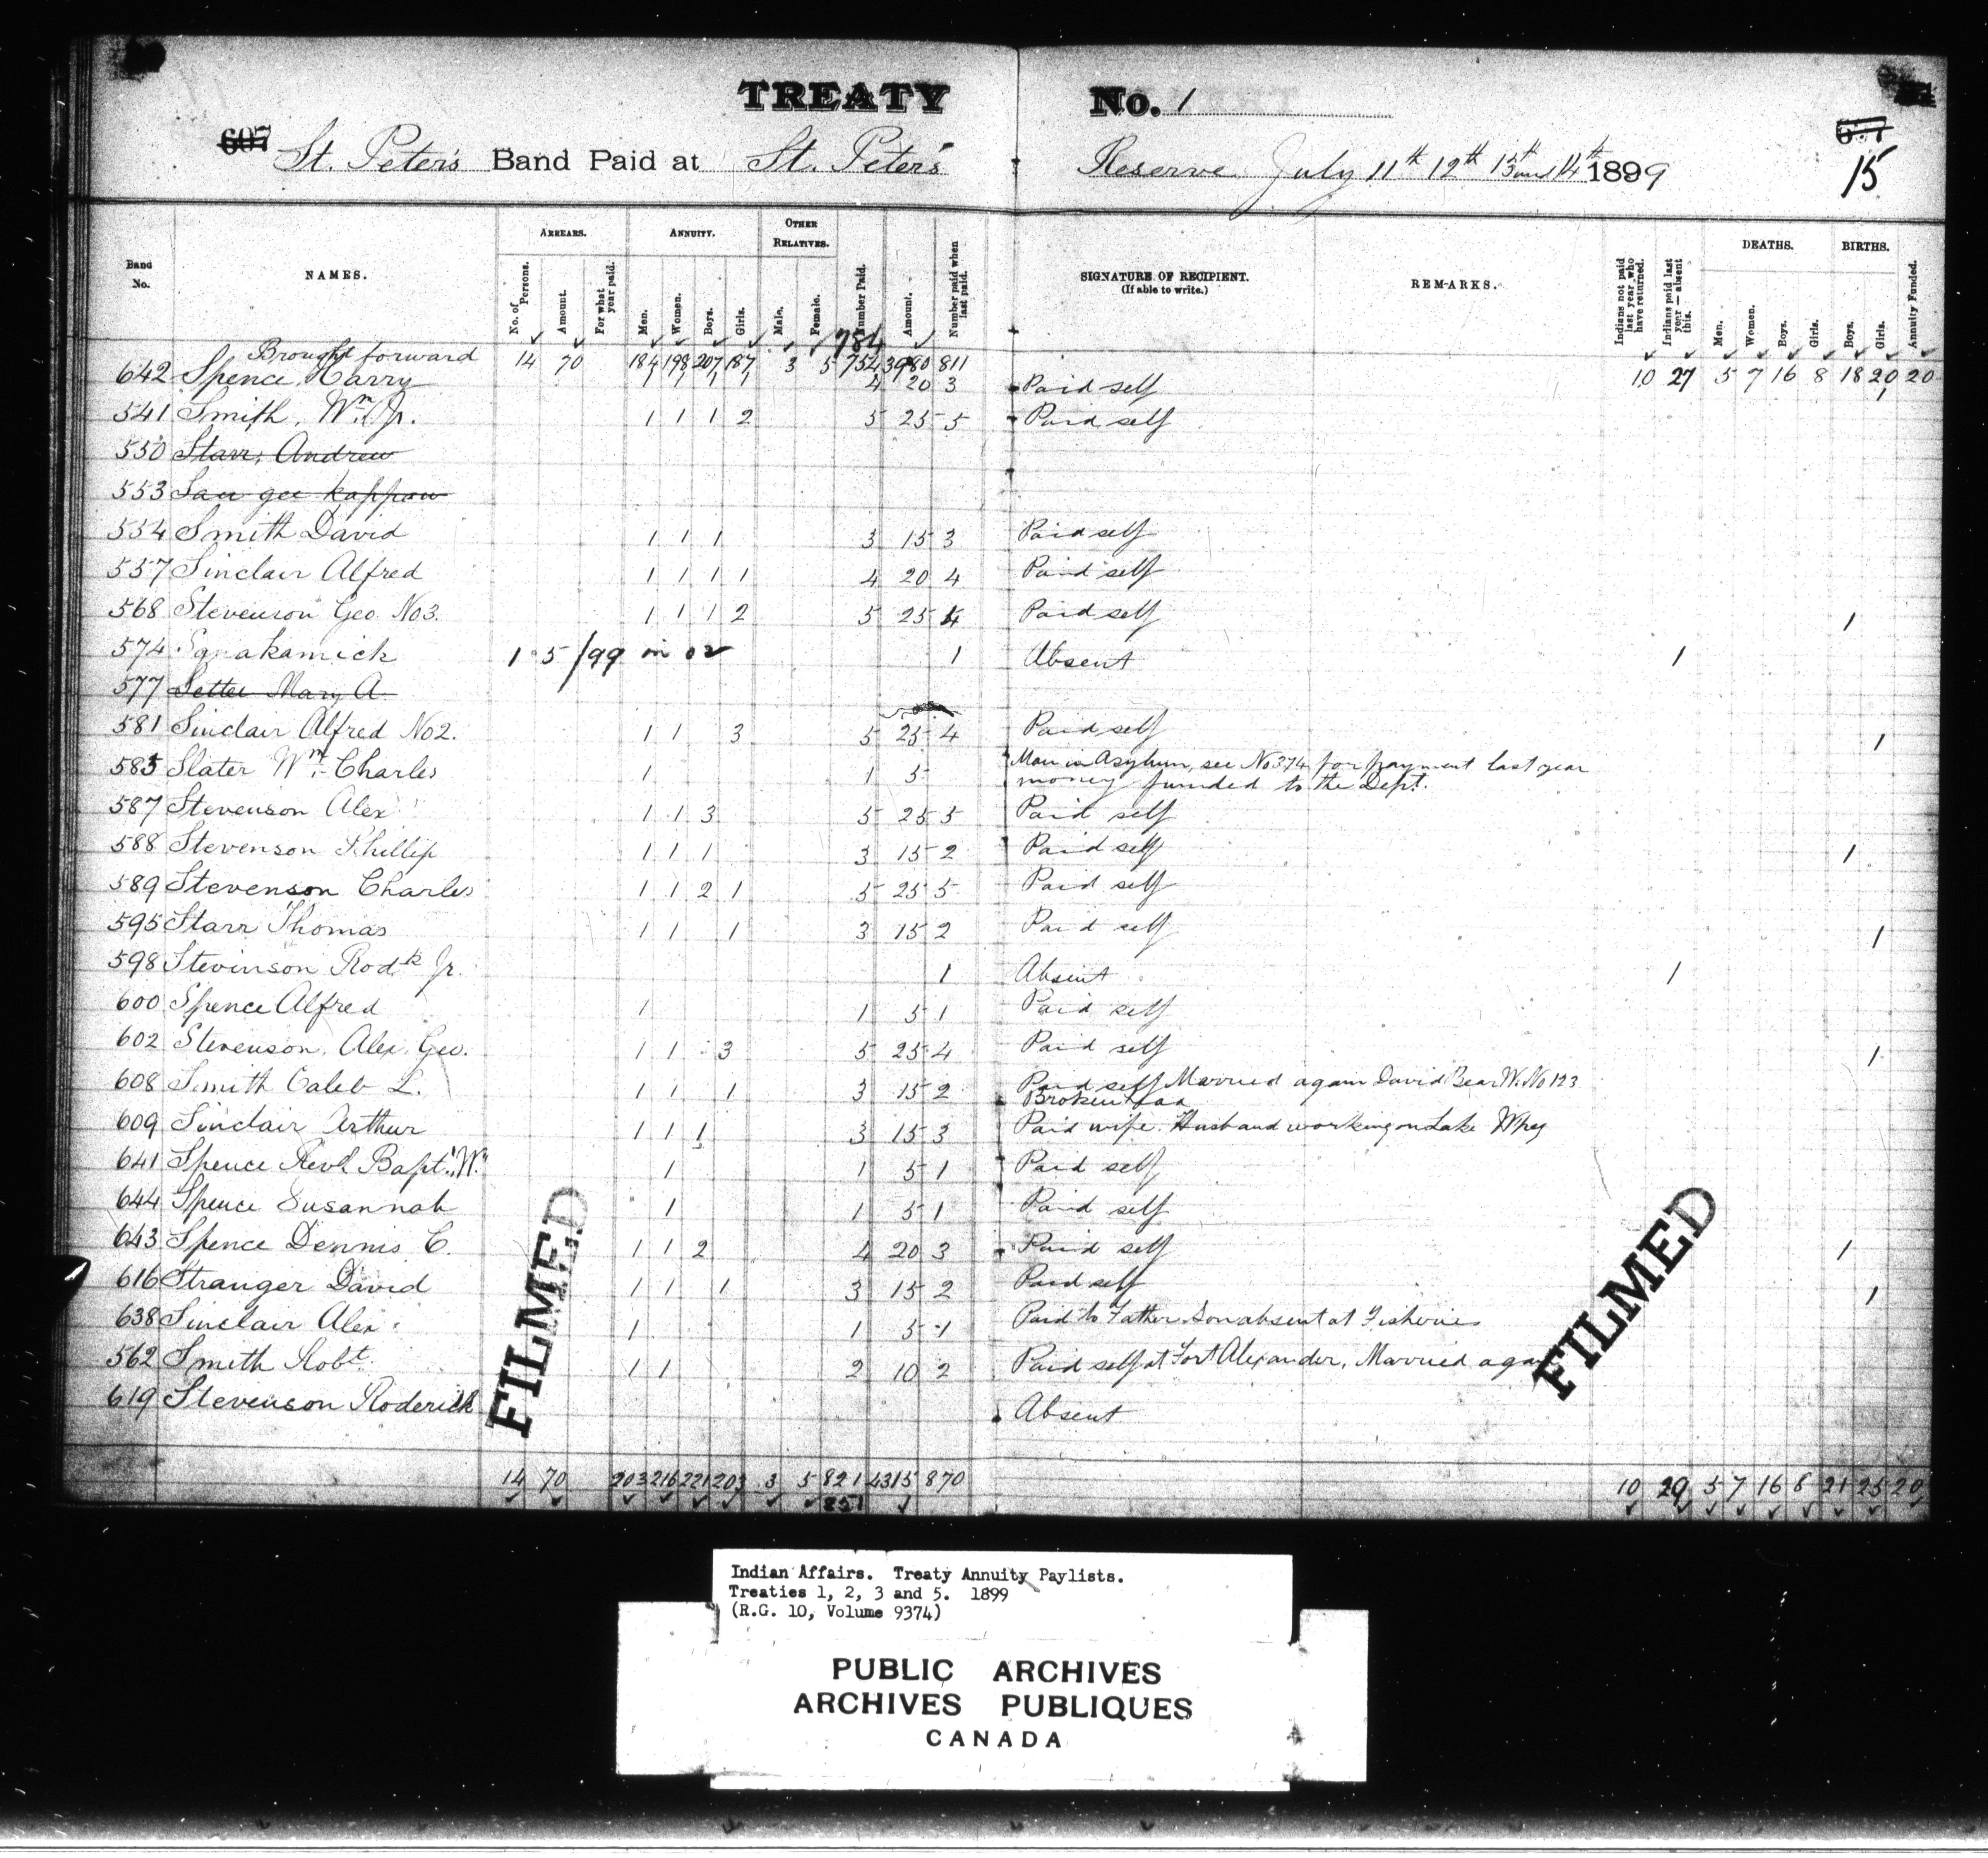 TREATY No. 1
607 St. Peter's Band Paid at St. Peter's Reserve July 11th 12th 13th and 14th 1899
15
Band No. NAMES. ARREARS. ANNUITY. OTHER RELATIVES. Number Paid. Amount. Number paid when last paid. SIGNATURE OF RECIPIENT. (If able to write.) REMARKS. Indians not paid last year, who have returned. Indians paid last year — absent this. DEATHS. BIRTHS. Annuity Funded.
No. of Persons. Amount. For what year paid. Men. Women. Boys. Girls. Male. Female. Men. Women. Boys. Girls. Boys. Girls.
784
Brought forward 14 70 184 198 207 187 3 5 754 3980 811 10 27 5 7 16 8 18 20 20
642 Spence Harry 1 1 1 1 4 20 3 Paid self 1
541 Smith, Wm Jr. 1 1 1 2 5 25 5 Paid self
550 Starr, Andrew
553 Sau gee kappow
554 Smith David 1 1 1 3 15 3 Paid self
557 Sinclair Alfred 1 1 1 1 4 20 4 Paid self
568 Stevenson Geo No 3. 1 1 1 2 5 25 4 Paid self 1
574 1 5 /99 in 02 1 Absent 1
577 Setter Mary A
581 Sinclair Alfred No 2. 1 1 3 5 25 4 Paid self 1
585 Slater Wm Charles 1 1 5 Man in Asylum, see No 374 for payment last year
money funded to the Dept.
587 Stevenson Alex 1 1 3 5 25 5 Paid self
588 Stevenson Phillip 1 1 1 3 15 2 Paid self 1
589 Stevenson Charles 1 1 2 1 5 25 5 Paid self
595 Starr Thomas 1 1 1 3 15 2 Paid self 1
598 Stevinson Rodk Jr. 1 Absent 1
600 Spence Alfred 1 1 5 1 Paid self
602 Stevenson, Alex Geo. 1 1 3 5 25 4 Paid self 1
608 Smith Caleb L. 1 1 1 3 15 2 Paid self Married again David Bear W. No 123
Brokenhead
609 Sinclair Arthur 1 1 1 3 15 3 Paid wife. Husband working on Lake Wpeg
641 Spence Revd Bapt. "W" 1 1 5 1 Paid self
644 Spence Susannah 1 1 5 1 Paid self
643 Spence Dennis C. 1 1 2 4 20 3 Paid self 1
616 Stranger David 1 1 1 3 15 2 Paid self 1
638 Sinclair Alex 1 1 5 1 Paid to Father Son absent at Fisheries
562 Smith Robt. 1 1 2 10 2 Paid self at Fort Alexander, Married again
619 Stevenson Roderick Absent
14 70 203 216 221 203 3 5 821 4315 870 10 29 5 7 16 8 21 25 20
851
FILMED
FILMED
Indian Affairs. Treaty Annuity Paylists.
Treaties 1, 2, 3 and 5. 1899
(R.G. 10, Volume 9374)
PUBLIC ARCHIVES
ARCHIVES PUBLIQUES
CANADA